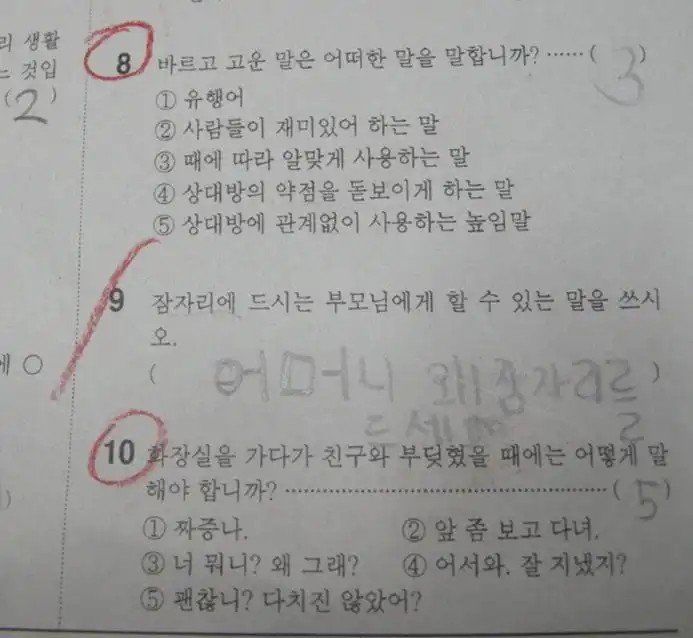 리 생활
는 것입
( 2 )
8 바르고 고운 말은 어떠한 말을 말합니까? ······( 3 )
① 유행어
② 사람들이 재미있어 하는 말
③ 때에 따라 알맞게 사용하는 말
④ 상대방의 약점을 돋보이게 하는 말
⑤ 상대방에 관계없이 사용하는 높임말
9 잠자리에 드시는 부모님에게 할 수 있는 말을 쓰시
오.
에 ○
( 어머니 왜 잠자리를 )
드세요
10 화장실을 가다가 친구와 부딪혔을 때에는 어떻게 말
해야 합니까? ······( 5 )
① 짜증나.
② 앞 좀 보고 다녀.
③ 너 뭐니? 왜 그래?
④ 어서와. 잘 지냈지?
⑤ 괜찮니? 다치진 않았어?